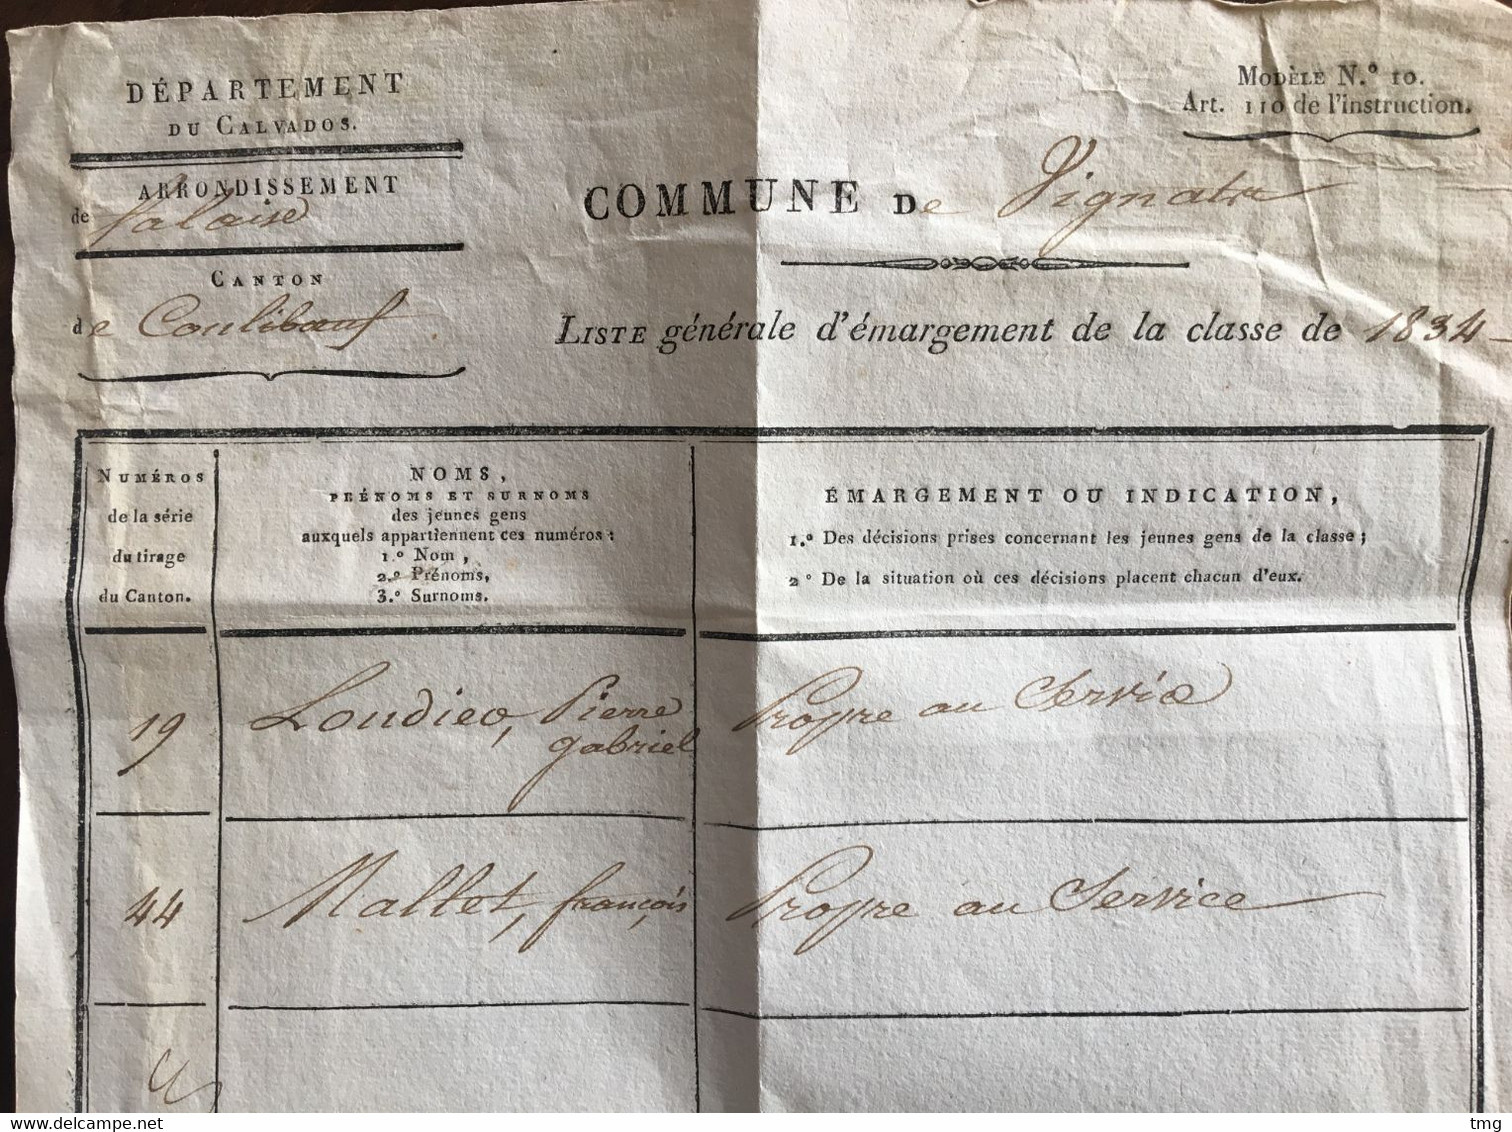 DÉPARTEMENT
DU CALVADOS.
ARRONDISSEMENT
de falaise
CANTON
de Coulibœuf
MODÈLE N.º 10.
Art. 110 de l'instruction.
COMMUNE De Vignats
LISTE générale d'émargement de la classe de 1834
NUMÉROS
de la série
du tirage
du Canton.
NOMS,
PRÉNOMS ET SURNOMS
des jeunes gens
auxquels appartiennent ces numéros :
1.º Nom,
2.º Prénoms,
3.º Surnoms.
ÉMARGEMENT OU INDICATION,
1.º Des décisions prises concernant les jeunes gens de la classe ;
2º De la situation où ces décisions placent chacun d'eux.
19 Loudieo, Pierre Propre au Service
gabriel
44 Mallet, françois Propre au Service
tmg